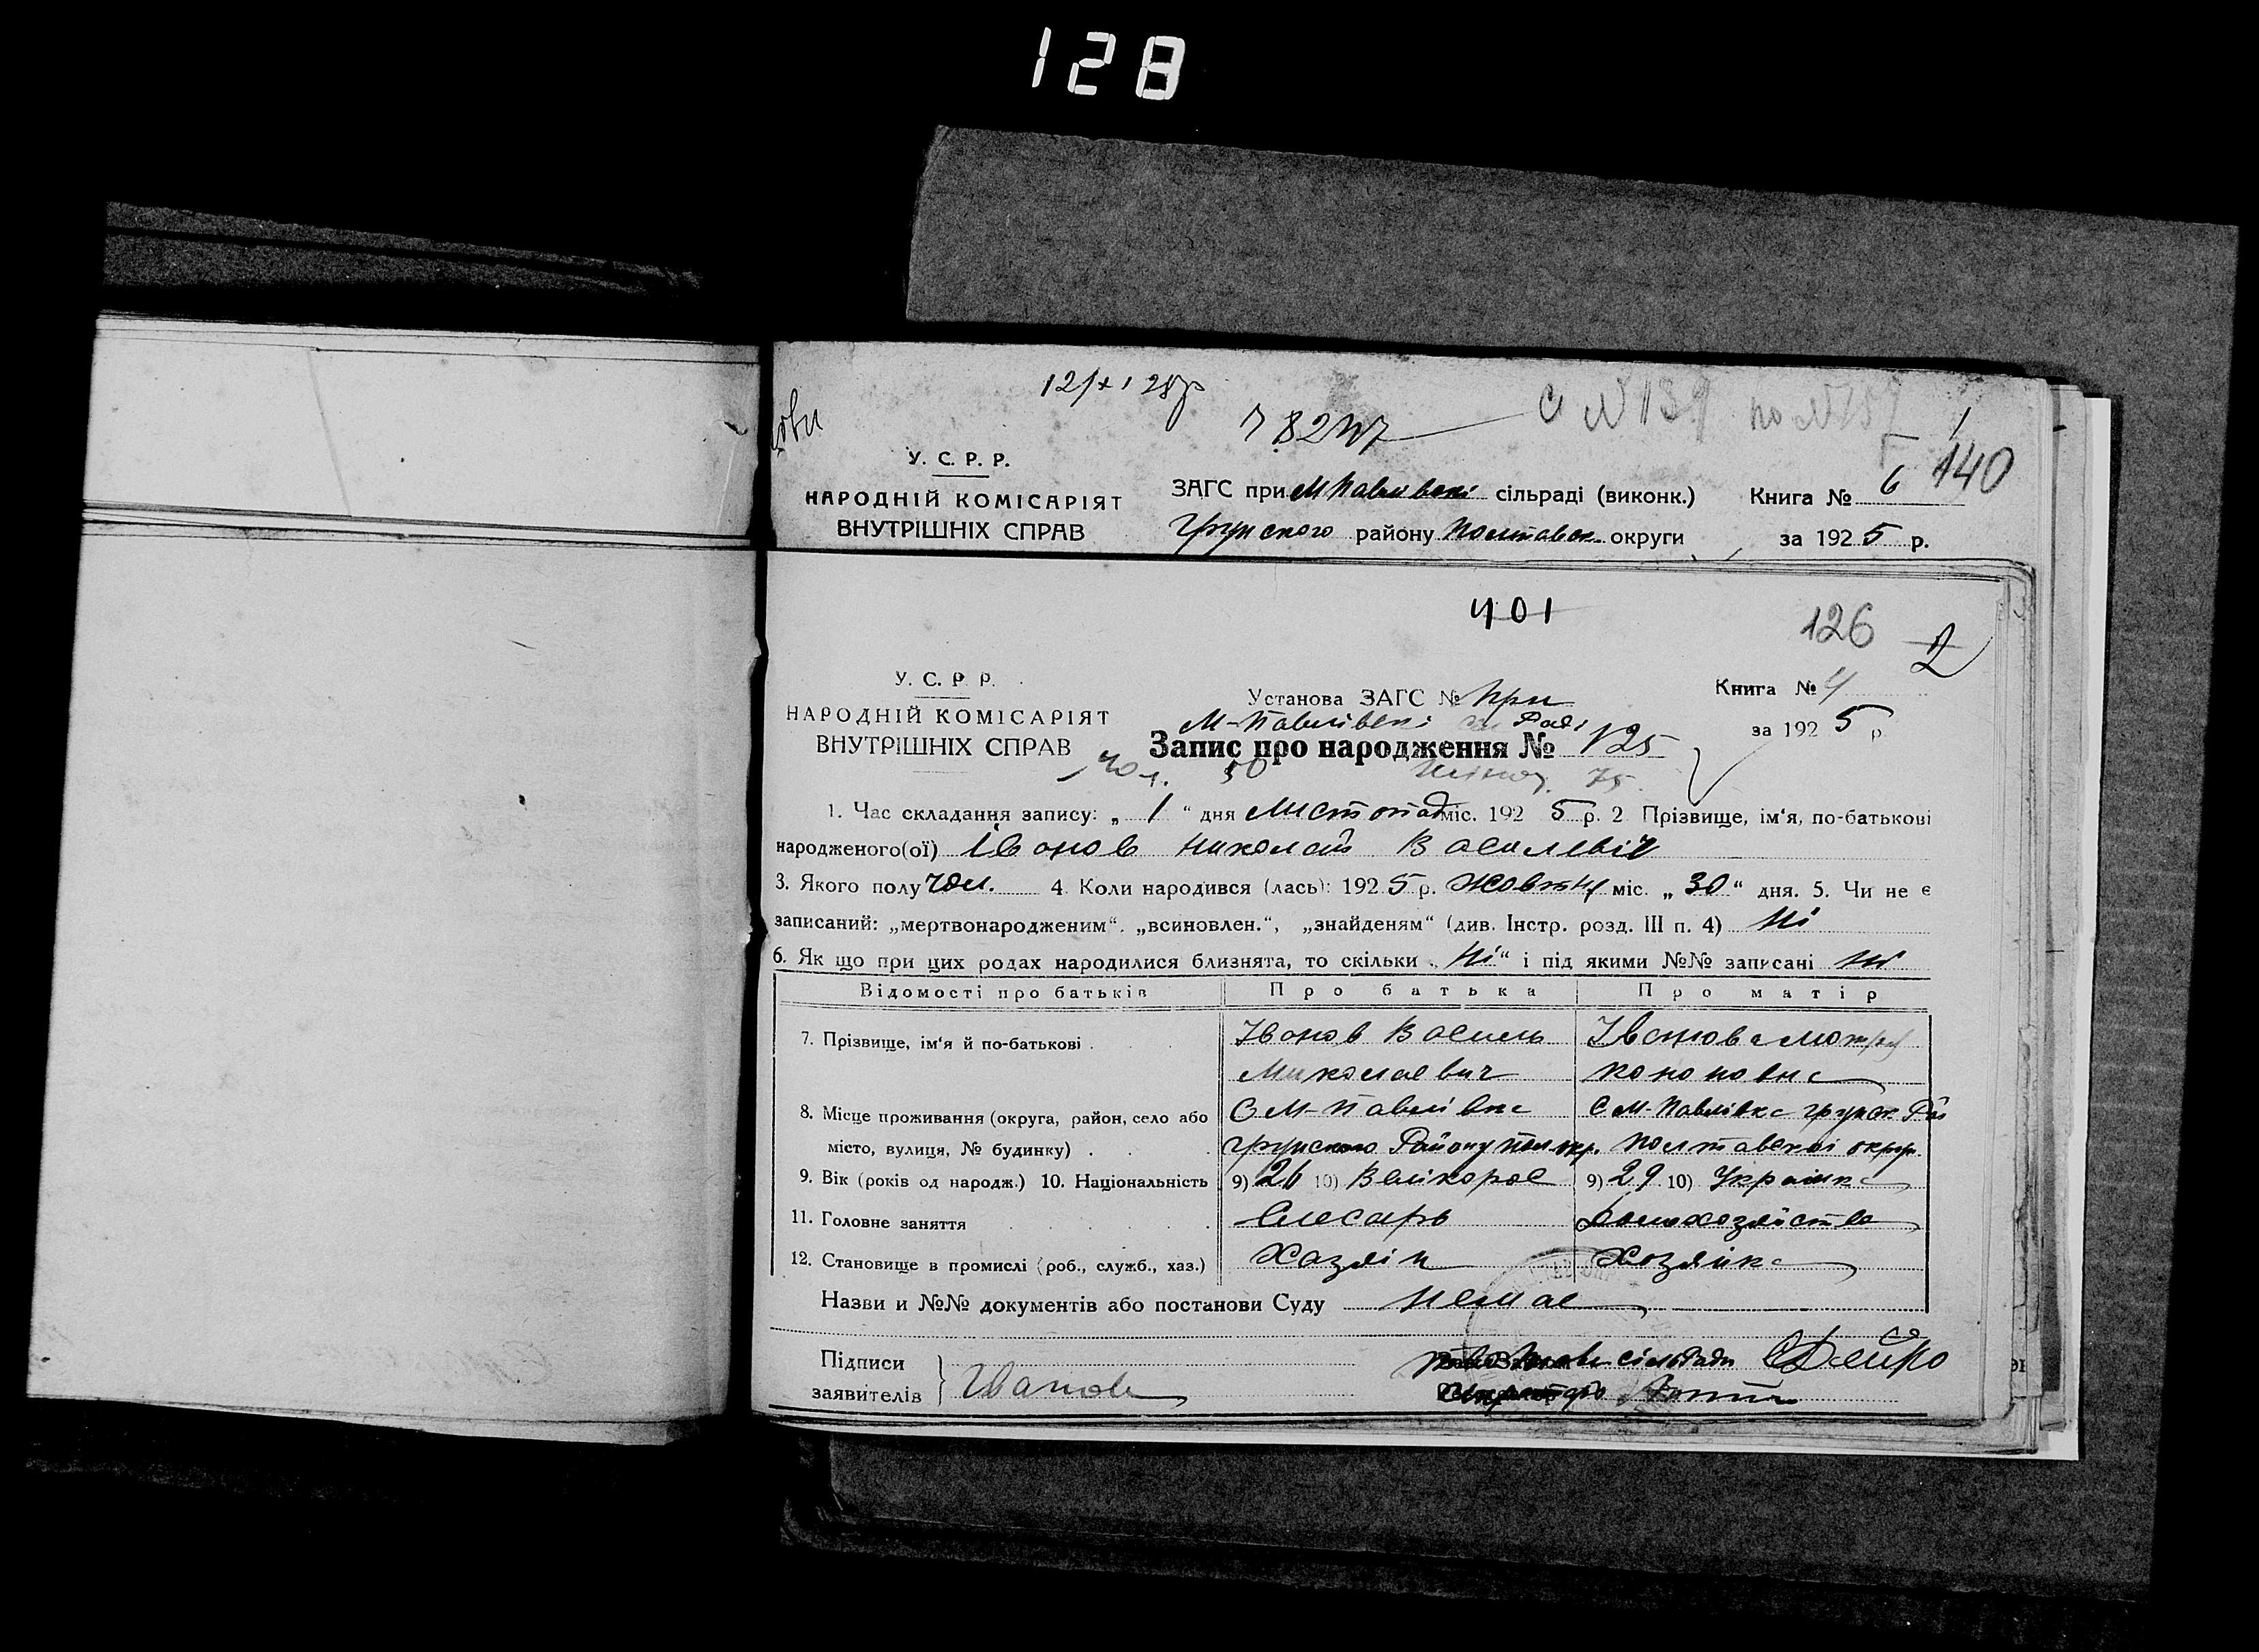 128
С №139 по №157
782
140
У. С. Р. Р.
НАРОДНІЙ КОМІСАРІЯТ
ВНУТРІШНІХ СПРАВ
ЗАГС при М Павлівскі сільраді (виконк.)
Грунского району Полтавск. округи
Книга № 6
за 1925 р.
401
126
2
У. С. Р. Р.
НАРОДНІЙ КОМІСАРІЯТ
ВНУТРІШНІХ СПРАВ
Установа ЗАГС № При
М-Павлівскі Раді
Книга № 4
за 1925 р.
Запис про народження № 125
чол. 50 жіноч. 75
1. Час складання запису: „ 1 “ дня Листопад міс. 1925 р. 2 Прізвище, ім‘я, по-батькові
народженого(ої) Івонов Николай Василевіч
3. Якого полу чол. 4. Коли народився (лась): 1925 р. Жовтня міс. „ 30 “ дня. 5. Чи не є
записаний: „мертвонародженим“, „всиновлен.“, „знайденям“ (див. Інстр. розд. III п. 4) Ні
6. Як що при цих родах народилися близнята, то скільки „ Ні “ і під якими №№ записані ні
Відомості про батьків Про батька Про матір
7. Прізвище, ім‘я й по-батькові . Івонов Василь Івонова Мотря
Миколаевич Кононовна
8. Місце проживання (округа, район, село або С М-Павлівка С М-Павлівка Грунск. Рай
місто, вулиця, № будинку) . Грунского Району Пол окр. Полтавскоі округ.
9. Вік (років од народж.) 10. Національність 9) 26 10) Велікорос 9) 29 10) Украінка
11. Головне заняття Слесарь Домохозяйство
12. Становище в промислі (роб., служб., хаз.) Хазяін Хозяйка
Назви и №№ документів або постанови Суду немае
Підписи
заявителів Иванов
сільради
Секретарь